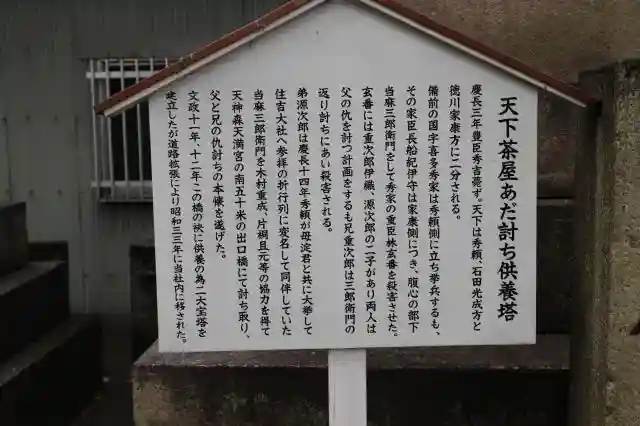 天下茶屋あだ討ち供養塔
慶長三年豊臣秀吉薨ず。天下は秀頼、石田光成方と
徳川家康方に二分される。
備前の国宇喜多秀家は秀頼側に立ち挙兵するも、
その家臣長船紀伊守は家康側につき、腹心の部下
当麻三郎衛門をして秀家の重臣林玄番を殺害させた。
玄番には重次郎伊織、源次郎の二子があり両人は
父の仇を討つ計画をするも兄重次郎は三郎衛門の
返り討ちにあい殺害される。
弟源次郎は慶長十四年秀頼が母淀君と共に大挙して
住吉大社へ参拝の折行列に変名して同伴していた
当麻三郎衛門を木村重成、片桐且元等の協力を得て
天神森天満宮の南五十米の出口橋にて討ち取り、
父と兄の仇討ちの本懐を遂げた。
文政十一年、十二年この橋の袂に供養の為二大宝塔を
建立したが道路拡張により昭和三三年に当社内に移された。